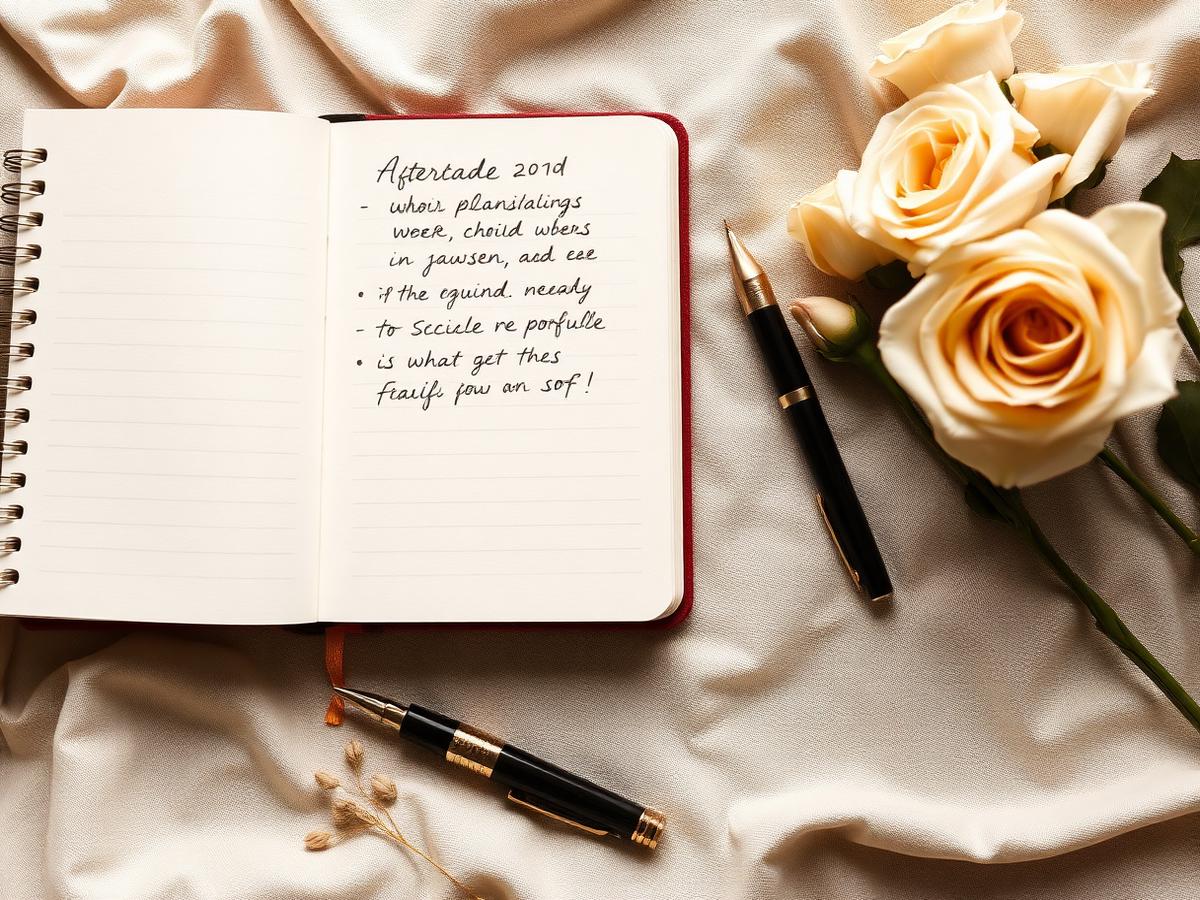 Aftertade 201d
- whoir planslalings
week, choild wbers
in jawsen, acd eee
• if the eguind. neealy
- to Sccicle re porfulle
• is what get thes
fow an sof!